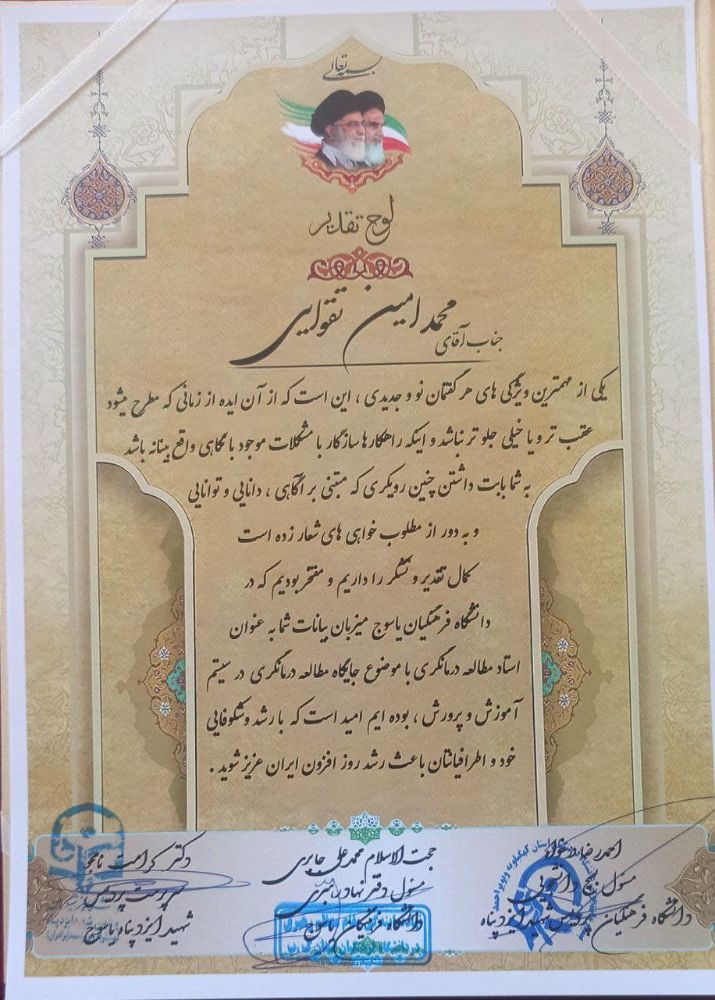 بسمه تعالی
لوح تقدیر
جناب آقای محمد امین تقوایی
یکی از مهمترین ویژگی های هر گفتمان نو و جدیدی ، این است که از آن ایده از زمانی که مطرح میشود
عقب تر و یا خیلی جلو تر نباشد و اینکه راهکارها سازگار با مشکلات موجود با نگاهی واقع بینانه باشد
به شما بابت داشتن چنین رویکری که مبتنی بر آگاهی ، دانایی و توانایی
و به دور از مطلوب خواهی های شعار زده است
کمال تقدیر و تشکر را داریم و مفتخر بودیم که در
دانشگاه فرهنگیان یاسوج میزبان بیانات شما به عنوان
استاد مطالعه درمانگری با موضوع جایگاه مطالعه درمانگری در سیستم
آموزش و پرورش ، بوده ایم امید است که با رشد و شکوفایی
خود و اطرافیانتان باعث رشد روز افزون ایران عزیز شوید .
احمدرضا
مسئول بسیج دانشجویی
دانشگاه فرهنگیان پردیس شهید ایزدپناه
حجت الاسلام محمد علی جابری
مسئول دفتر نهاد رهبری
دانشگاه فرهنگیان یاسوج
دکتر کرامت
سرپرست پردیس
شهید ایزدپناه یاسوج